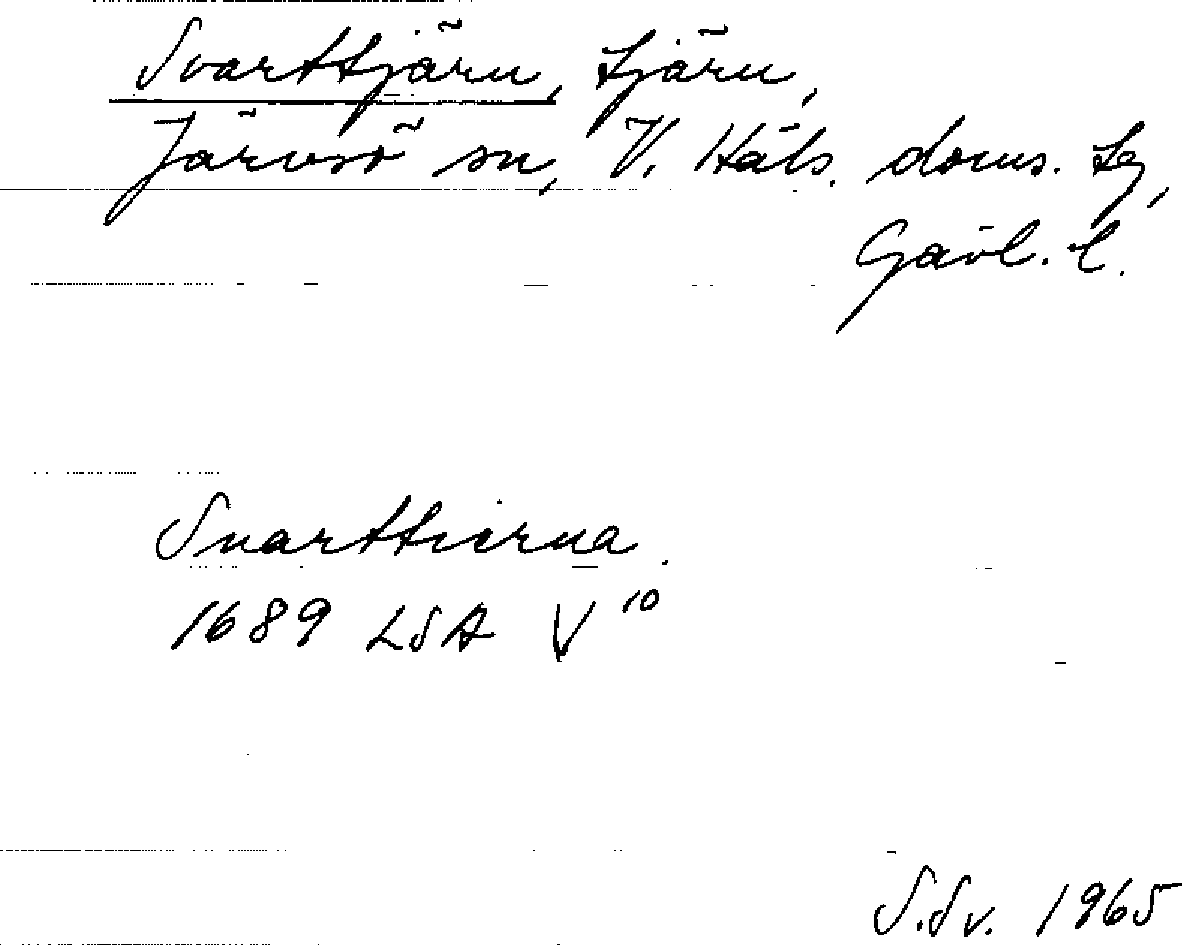 Svarttjärn, tjärn,
Järvsö sn, V. Häls. doms. tg,
Gävl. l.
Svarttierna.
1689 LSA V 10
S.Sv. 1965